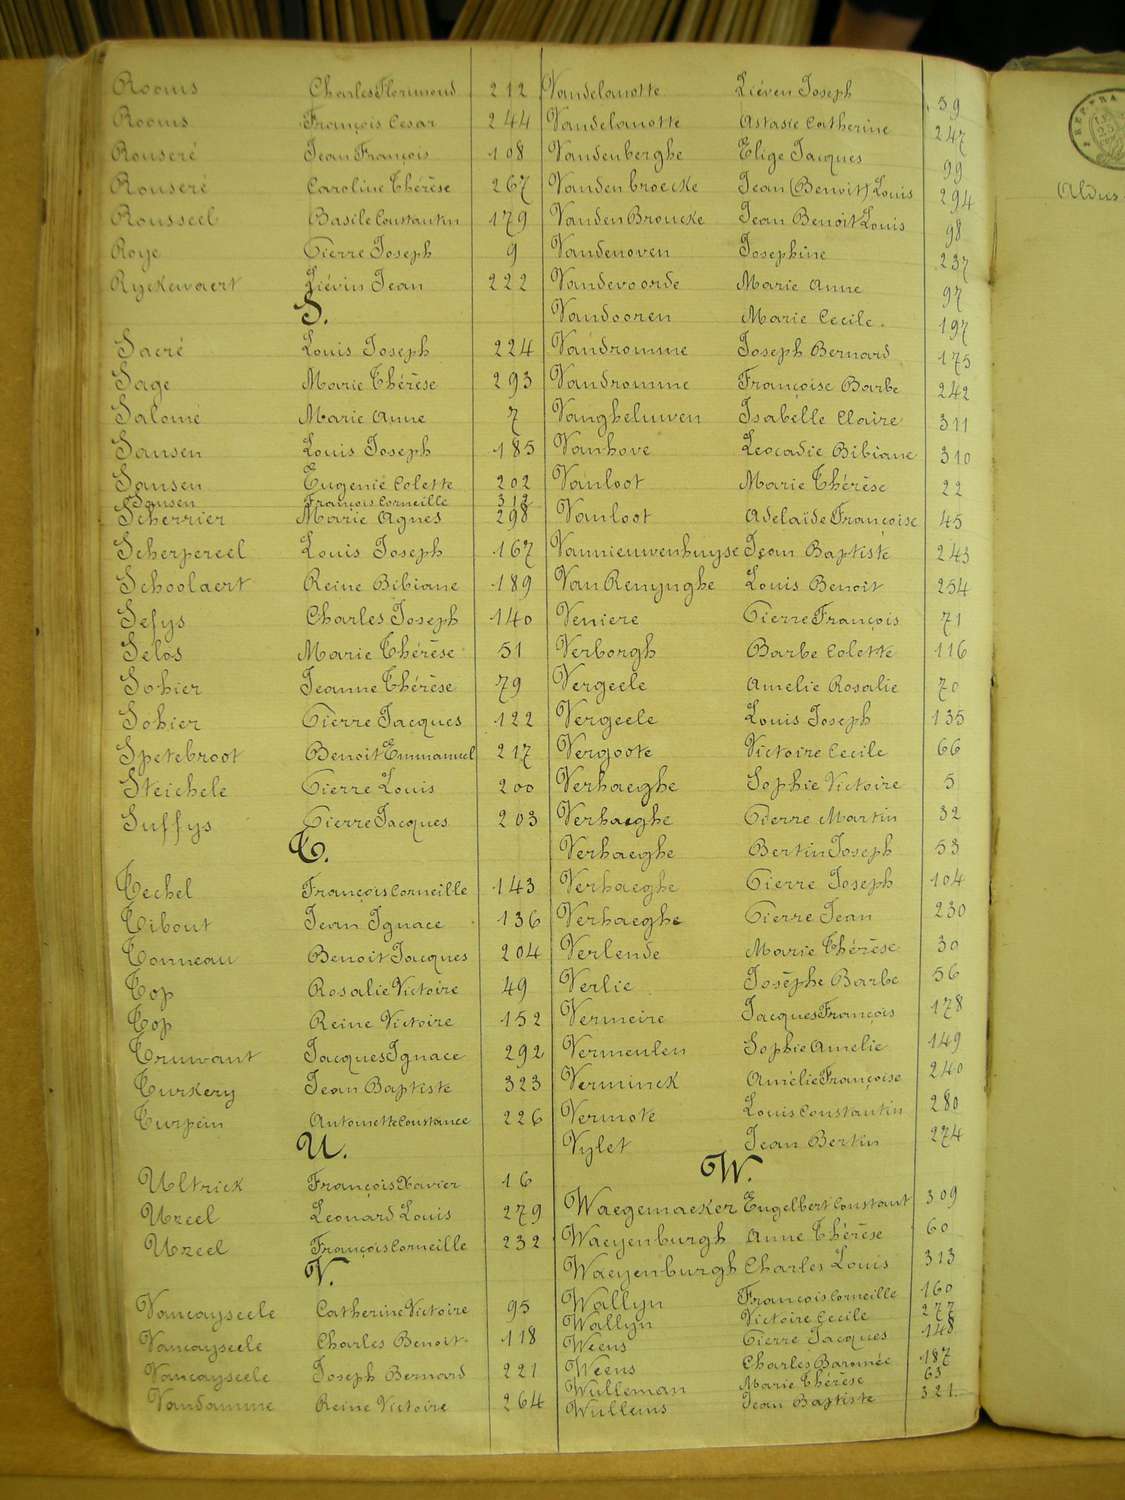 Rooms Charles Florimond 212
Rooms François Cesar 244
Rouseré Jean François 108
Rouseré Caroline Thérèse 267
Rousseel Basile Constantin 179
Roye Pierre Joseph 9
Ryckewaert Liévin Jean 222
S.
Sacré Louis Joseph 224
Sage Marie Thérèse 293
Salomé Marie Anne 7
Sansen Louis Joseph 185
Sansen Eugenié Colette 202
Sansen François Corneille 312
Scherrier Marie Agnes 298
Scherpereel Louis Joseph 167
Schoolaert Reine Bibiane 189
Sefys Charles Joseph 140
Selos Marie Thérèse 51
Sohier Jeanne Thérèse 79
Sohier Pierre Jacques 122
Spetebroot Benoit Emmanuel 217
Steichele Pierre Louis 200
Suffys Pierre Jacques 203
T.
Techel François Corneille 143
Tibout Jean Ignace 136
Tonneau Benoit Jacques 204
Top Rosalie Victoire 49
Top Reine Victoire 152
Truwant Jacques Ignace 292
Turkery Jean Baptiste 323
Turpein Antoinette Constance 226
U.
Ultrick François Xavier 16
Uzeel Leonard Louis 279
Uzeel François Corneille 232
V.
Vancayseele Catherine Victoire 95
Vancayseele Charles Benoit 118
Vancayseele Joseph Bernard 221
Vandamme Reine Victoire 264
Vandelanotte Liéven Joseph 59
Vandelanotte Astasie Catherine 247
Vandenberghe Elige Jacques 99
Vandenbroecke Jean (Benoit) Louis 294
VandenBroucke Jean Benoit Louis 98
Vandenoven Josephine 237
Vandevoorde Marie Anne 97
Vandooren Marie Cecile. 197
Vandromme Joseph Bernard 175
Vandromme Françoise Barbe 242
Vangheluwen Isabelle Claire 311
Vanhove Leocadie Bibiane 310
Vanloot Marie Thérèse 22
Vanloot Adelaïde Françoise 45
Vannieuwenhuyse Jean Baptiste 243
Van Renynghe Louis Benoit 254
Veniere Pierre François 71
Verborgh Barbe Colette 116
Vergeele Amelie Rosalie 70
Vergeele Louis Joseph 135
Vergoote Victoire Cecile 66
Verhaeghe Sophie Victoire 5
Verhaeghe Pierre Martin 32
Verhaeghe Bertin Joseph 53
Verhaeghe Pierre Joseph 104
Verhaeghe Pierre Jean 230
Verlende Marie Thérèse 30
Verlie Josèphe Barbe 56
Vermeire Jacques François 178
Vermeulen Sophie Amelie 149
Verminck Amélie Françoise 240
Vermote Louis Constantin 280
Vylet Jean Bertin 274
W.
Waegemaeker Engelbert Constant 309
Waeyenburgh Anne Thérèse 60
Waeyenburgh Charles Louis 313
Wallyn François Corneille 160
Wallyn Victoire Cecile 277
Weens Pierre Jacques 148
Weens Charles Baromée 187
Wulleman Marie Thérèse 63
Wullems Jean Baptiste 321